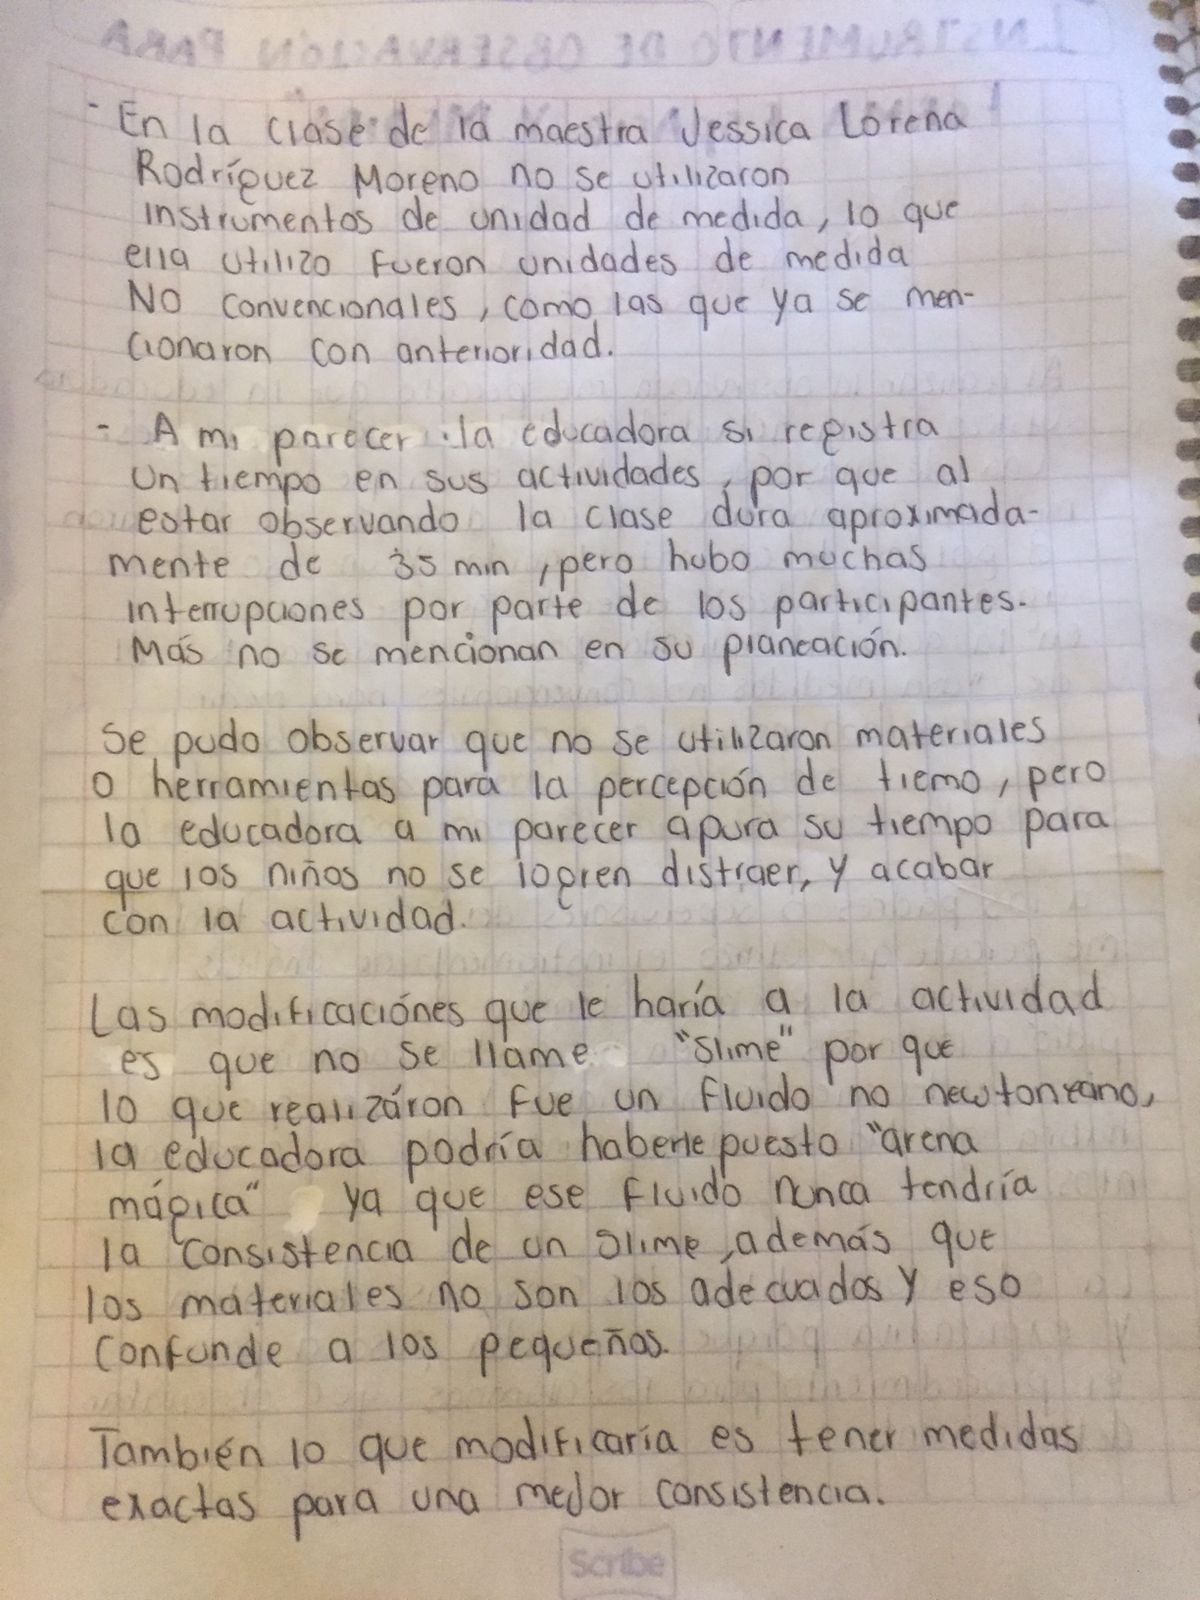 - En la clase de la maestra Jessica Lorena
Rodríguez Moreno no se utilizaron
instrumentos de unidad de medida, lo que
ella utilizo fueron unidades de medida
NO convencionales, como las que ya se men-
cionaron con anterioridad.
- A mi parecer la educadora si registra
un tiempo en sus actividades, por que al
estar observando la clase dura aproximada-
mente de 35 min, pero hubo muchas
interrupciones por parte de los participantes.
Más no se mencionan en su planeación.
Se pudo observar que no se utilizaron materiales
o herramientas para la percepción de tiemo, pero
la educadora a mi parecer apura su tiempo para
que los niños no se logren distraer, y acabar
con la actividad.
Las modificaciónes que le haría a la actividad
es que no se llame "slime" por que
lo que realizáron fue un fluido no newtoneano,
la educadora podría haberle puesto "arena
mágica" ya que ese fluido nunca tendría
la consistencia de un slime, además que
los materiales no son los adecuados y eso
confunde a los pequeños.
También lo que modificaría es tener medidas
exactas para una mejor consistencia.
Scribe